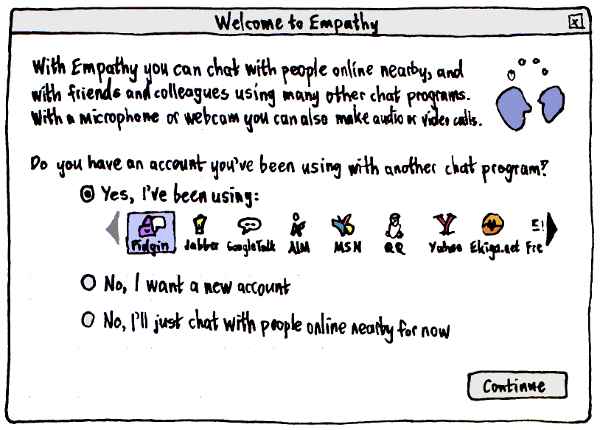 Welcome to Empathy
x
With Empathy you can chat with people online nearby, and
with friends and colleagues using many other chat programs.
With a microphone or webcam you can also make audio or video calls.
Do you have an account you've been using with another chat program?
Yes, I've been using:
Pidgin Jabber GoogleTalk AIM MSN QQ Yahoo Ekiga.net Fre
No, I want a new account
No, I'll just chat with people online nearby for now
Continue